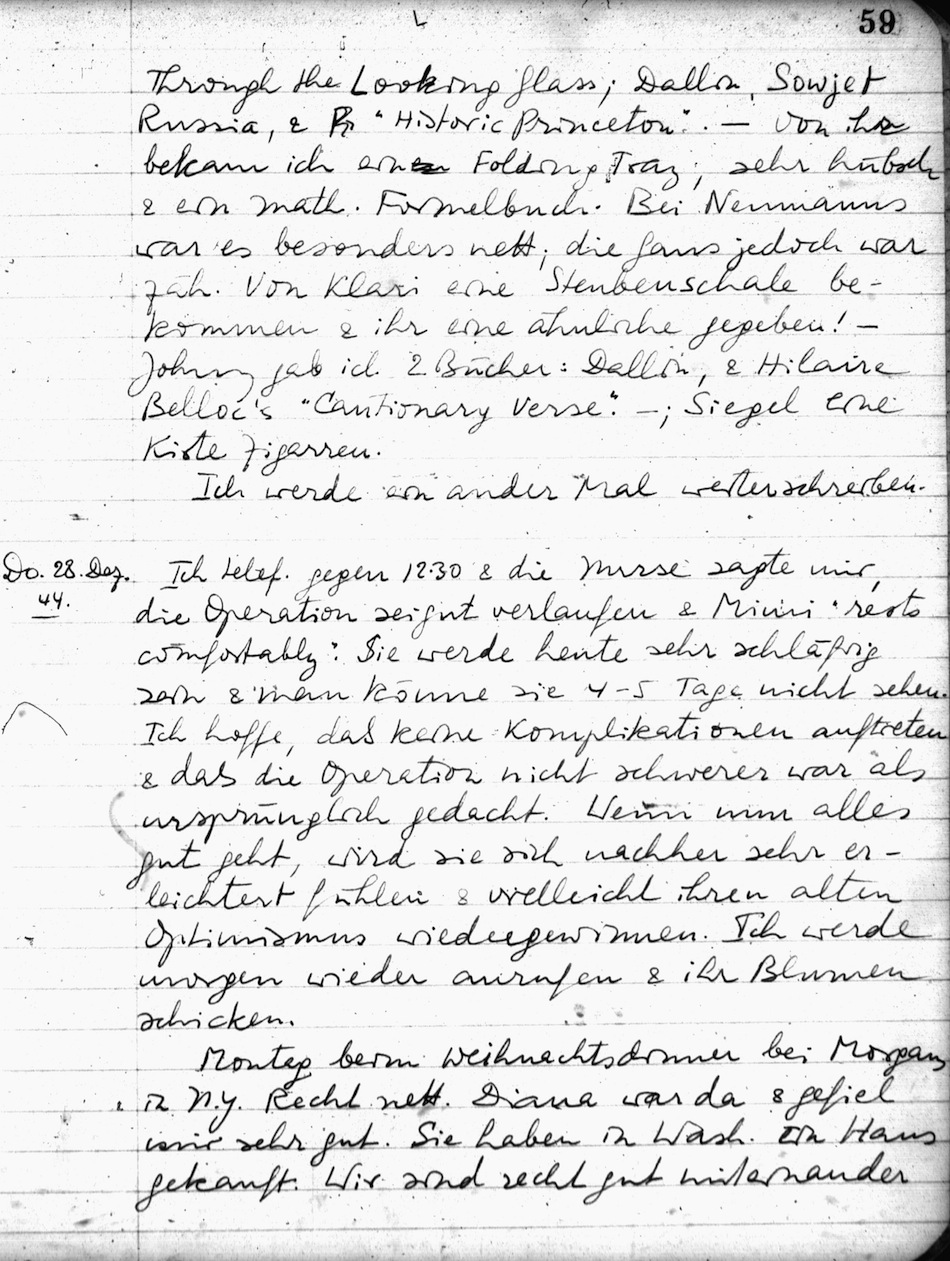 59
Through the Looking Glass; Dallin, Sowjet
Russia, & "Historic Princeton". — Von ihr
bekam ich ein Folding Tray, sehr hübsch
& ein math. Formelbuch. Bei Neumanns
war es besonders nett; die Gans jedoch war
zäh. Von Klari eine Steubenschale be-
kommen & ihr eine ähnliche gegeben! —
Johnny gab ich 2 Bücher: Dallin, & Hilaire
Belloc's "Cautionary Verse". —; Siegel eine
Kiste Zigarren.
Ich werde ein ander Mal weiterschreiben.
Do. 28. Dez.
44.
Ich telef. gegen 12.30 & die Nurse sagte mir,
die Operation sei gut verlaufen & Mimi "rests
comfortably". Sie werde heute sehr schläfrig
sein & man könne sie 4-5 Tage nicht sehen.
Ich hoffe, daß keine Komplikationen auftreten
& daß die Operation nicht schwerer war als
ursprünglich gedacht. Wenn nun alles
gut geht, wird sie sich nachher sehr er-
leichtert fühlen & vielleicht ihren alten
Optimismus wiedergewinnen. Ich werde
morgen wieder anrufen & ihr Blumen
schicken.
Montag beim Weihnachtsdinner bei Morgans
in N.Y. Recht nett. Diana war da & gefiel
mir sehr gut. Sie haben in Wash. ein Haus
gekauft. Wir sind recht gut miteinander